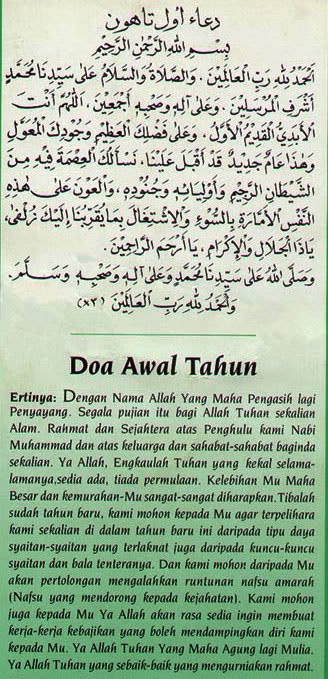 دعاء اول تاهون
بِسْمِ اللهِ الرَّحْمٰنِ الرَّحِيْمِ
اَلْحَمْدُ لِلّٰهِ رَبِّ الْعَالَمِيْنَ . وَالصَّلَاةُ وَالسَّلَامُ عَلٰى سَيِّدِنَا مُحَمَّدٍ
اَشْرَفِ الْمُرْسَلِيْنَ . وَعَلٰى آلِهِ وَصَحْبِهِ اَجْمَعِيْنَ . اَللّٰهُمَّ اَنْتَ
الْاَبَدِيُّ الْقَدِيْمُ الْاَوَّلُ . وَعَلٰى فَضْلِكَ الْعَظِيْمِ وَجُوْدِكَ الْمُعَوَّلُ
وَهٰذَا عَامٌ جَدِيْدٌ قَدْ اَقْبَلَ عَلَيْنَا . نَسْأَلُكَ الْعِصْمَةَ فِيْهِ مِنَ
الشَّيْطَانِ الرَّجِيْمِ وَاَوْلِيَائِهِ وَجُنُوْدِهِ . وَالْعَوْنَ عَلٰى هٰذِهِ
النَّفْسِ الْاَمَّارَةِ بِالسُّوْءِ وَالْاِشْتِغَالَ بِمَا يُقَرِّبُنَا اِلَيْكَ زُلْفٰى .
يَاذَا الْجَلَالِ وَالْاِكْرَامِ . يَا اَرْحَمَ الرَّاحِمِيْنَ .
وَصَلَّى اللهُ عَلٰى سَيِّدِنَا مُحَمَّدٍ وَعَلٰى آلِهِ وَصَحْبِهِ وَسَلَّمَ .
وَالْحَمْدُ لِلّٰهِ رَبِّ الْعَالَمِيْنَ (×٣)
Doa Awal Tahun
Ertinya: Dengan Nama Allah Yang Maha Pengasih lagi
Penyayang. Segala pujian itu bagi Allah Tuhan sekalian
Alam. Rahmat dan Sejahtera atas Penghulu kami Nabi
Muhammad dan atas keluarga dan sahabat-sahabat baginda
sekalian. Ya Allah, Engkaulah Tuhan yang kekal selama-
lamanya,sedia ada, tiada permulaan. Kelebihan Mu Maha
Besar dan kemurahan-Mu sangat-sangat diharapkan.Tibalah
sudah tahun baru, kami mohon kepada Mu agar terpelihara
kami sekalian di dalam tahun baru ini daripada tipu daya
syaitan-syaitan yang terlaknat juga daripada kuncu-kuncu
syaitan dan bala tenteranya. Dan kami mohon daripada Mu
akan pertolongan mengalahkan runtunan nafsu amarah
(Nafsu yang mendorong kepada kejahatan). Kami mohon
juga kepada Mu Ya Allah akan rasa sedia ingin membuat
kerja-kerja kebajikan yang boleh mendampingkan diri kami
kepada Mu. Ya Allah Tuhan Yang Maha Agung lagi Mulia.
Ya Allah Tuhan yang sebaik-baik yang mengurniakan rahmat.